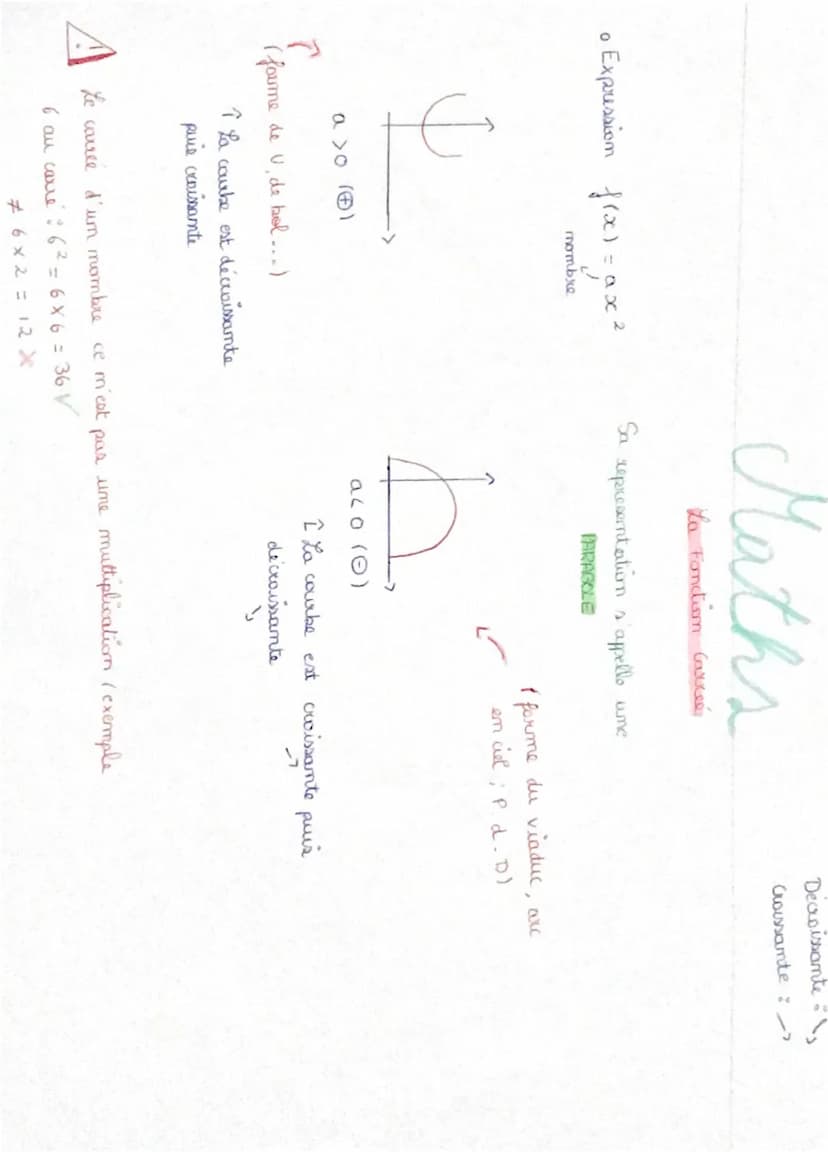 Décroissante : ↘
Croissante : ↗
Maths
La Fonction Carrée
o Expression f(x) = ax²
nombre
Sa représentation s'appelle une
PARABOLE
(forme du viaduc, arc
en ciel ; P. d. D)
a > 0 (+)
a < 0 (-)
(forme de U, de bol...)
↑ La courbe est décroissante
puis croissante
↑ La courbe est croissante puis
décroissante
! Le carré d'un nombre ce n'est pas une multiplication (exemple
6 au carré : 6² = 6 x 6 = 36 √
≠ 6 x 2 = 12 x